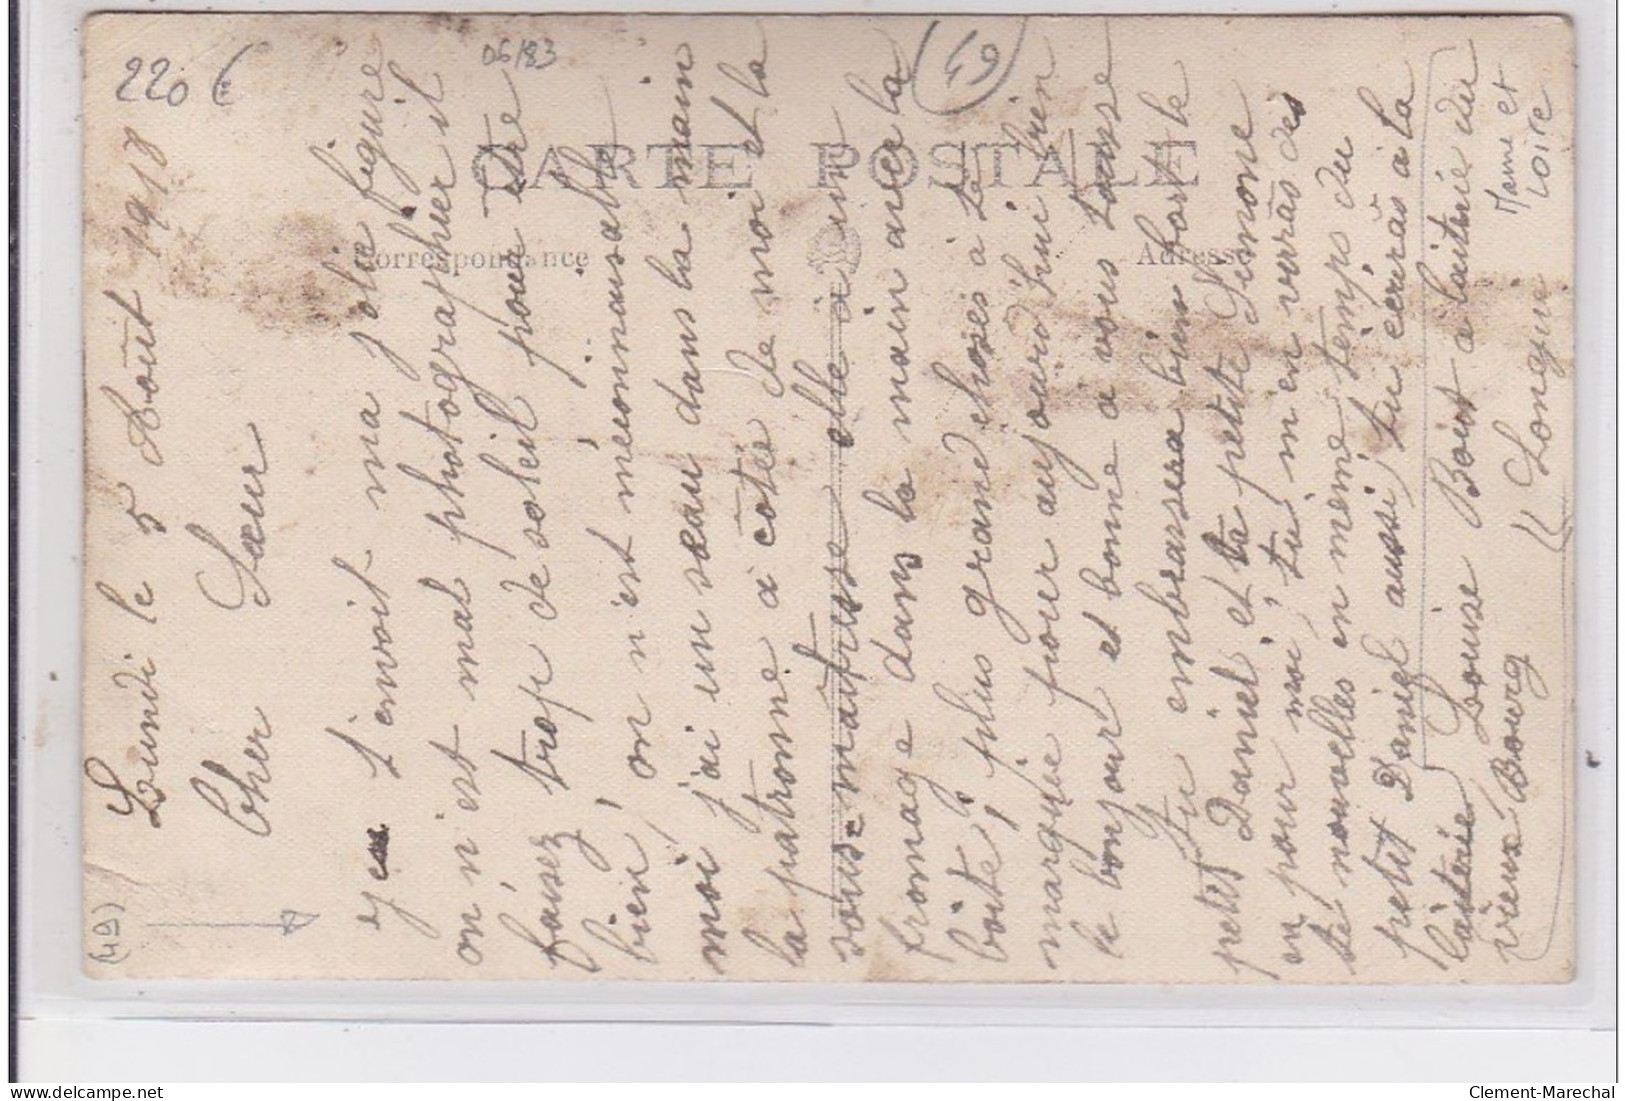 220 €
06/83
49
CARTE POSTALE
Correspondance
Adresse
Lundi le 5 Août 1918
Cher Sœur
je t'envoit ma jolie figure
on n'est mal photographier il
faisez trop de soleil pour être
bien, on n'est méconnaisable
moi j'ai un seau dans la main
la patronne a côtée de moi et la
sous-maîtresse elle a un
fromage dans la main avec la
boite, plus grand choses a te
marquée pour aujourd'hui bien
le bonjour et bonne a vous tousse
tu embrassera bien fort le
petit Daniel et ta petite Simone
en pour moi, tu m'en verras des
té nouvelles en même temps du
petit Daniel aussi, tu écriras a la
laiterie Louise Boit a laiterie du
vieux Bourg Longué
Maine et
Loire
(49)
Clement-Marechal